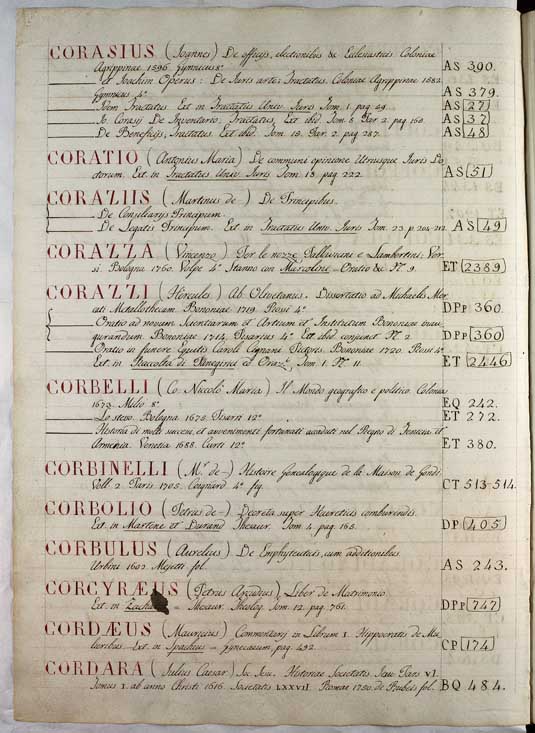 CORASIUS (Joannes) De officijs, electionibus & Ecclesiasticis. Coloniae
Agrippinae. 1596. Gymnicus 8° AS 390.
et Joachim Operus: De Iuris arte: Tractatus. Coloniae Agrippinae 1582.
Gymnicus 4° AS 379.
Idem Tractatus. Ext. in Tractatus Univ. Iuris Tom. 1. pag. 49. AS 27
Io. Corasij De Inventario, Tractatus. Ext. ibid. Tom. 8. Par. 2. pag. 160. AS 37
De Beneficijs, Tractatus. Ext. ibid. Tom. 15. Par. 2. pag. 287. AS 48
CORATIO (Antonius Maria) De communi opinione Utriusque Iuris Do-
ctorum. Ext. in Tractatus Univ. Iuris Tom. 18. pag. 222. AS 51
CORAZIIS (Martinus de) De Principibus.
De Consiliarijs Principum.
De Legatis Principum. Ext. in Tractatus Univ. Iuris Tom. 23. p. 204. 212. AS 49
CORAZZA (Vincenzo) Per le nozze Pallavicine e Lambertini, Ver-
si. Bologna 1760. Volpe 4° Stanno con Oratio &c. N. 9. ET 2389
CORAZZI (Hercules) Ab. Olivetanus. Dissertatio ad Michaelis Mer-
cati Metallothecam. Bononiae 1719. Rossi 4° DPp 360.
Oratio ad novum Scientiarum et Artium et Institutum Bononiae inau-
gurandum. Bononiae 1714. Pisarius 4° Ext. ibid. conjunct. N. 2. DPp 360
Oratio in funere Equitis Caroli Cignani Pictoris. Bononiae 1720. Rossi 4°
Ext. in Raccolta di Panegirici ed Oraz. Tom. 1. N. 11. ET 2446
CORBELLI (Co. Niccolò Maria) Il Mondo geografico e politico. Colonia
1673. 8° EQ 242.
Lo stesso. Bologna. 1675. Pisarri 12° ET 272.
Historia di molti successi, et avvenimenti fortunati accaduti nel Regno di Fenicia, et
Armenia. Venetia 1688. Curti 12° ET 380.
CORBINELLI (Mr. de) Histoire Genealogique de la Maison de Gondi.
Voll. 2. Paris 1705. Coignard 4° fig. CT 513-514.
CORBOLIO (Petrus de) Decreta super Haereticis comburendis.
Ext. in Martene et Durand Thesaur. Tom. 4. pag. 165. DP 405
CORBULUS (Aurelius) De Emphyteuticis, cum additionibus.
Urbini 1602. fol. AS 243.
CORCYRÆUS (Petrus Arcadius) Liber de Matrimonio.
Ext. in Thesaur. Theolog. Tom. 12. pag. 761. DPp 747
CORDÆUS (Mauricius) Commentarij in Librum 1. Hippocratis de Mu-
lieribus. Ext. in Spachius Gynecaeum, pag. 492. CP 174
CORDARA (Iulius Caesar) Soc. Iesu. Historiae Societatis Iesu Pars VI.
Tomus 1. ab anno Christi 1616. Societatis LXXVII. Romae 1750. de Rubeis fol. BQ 484.